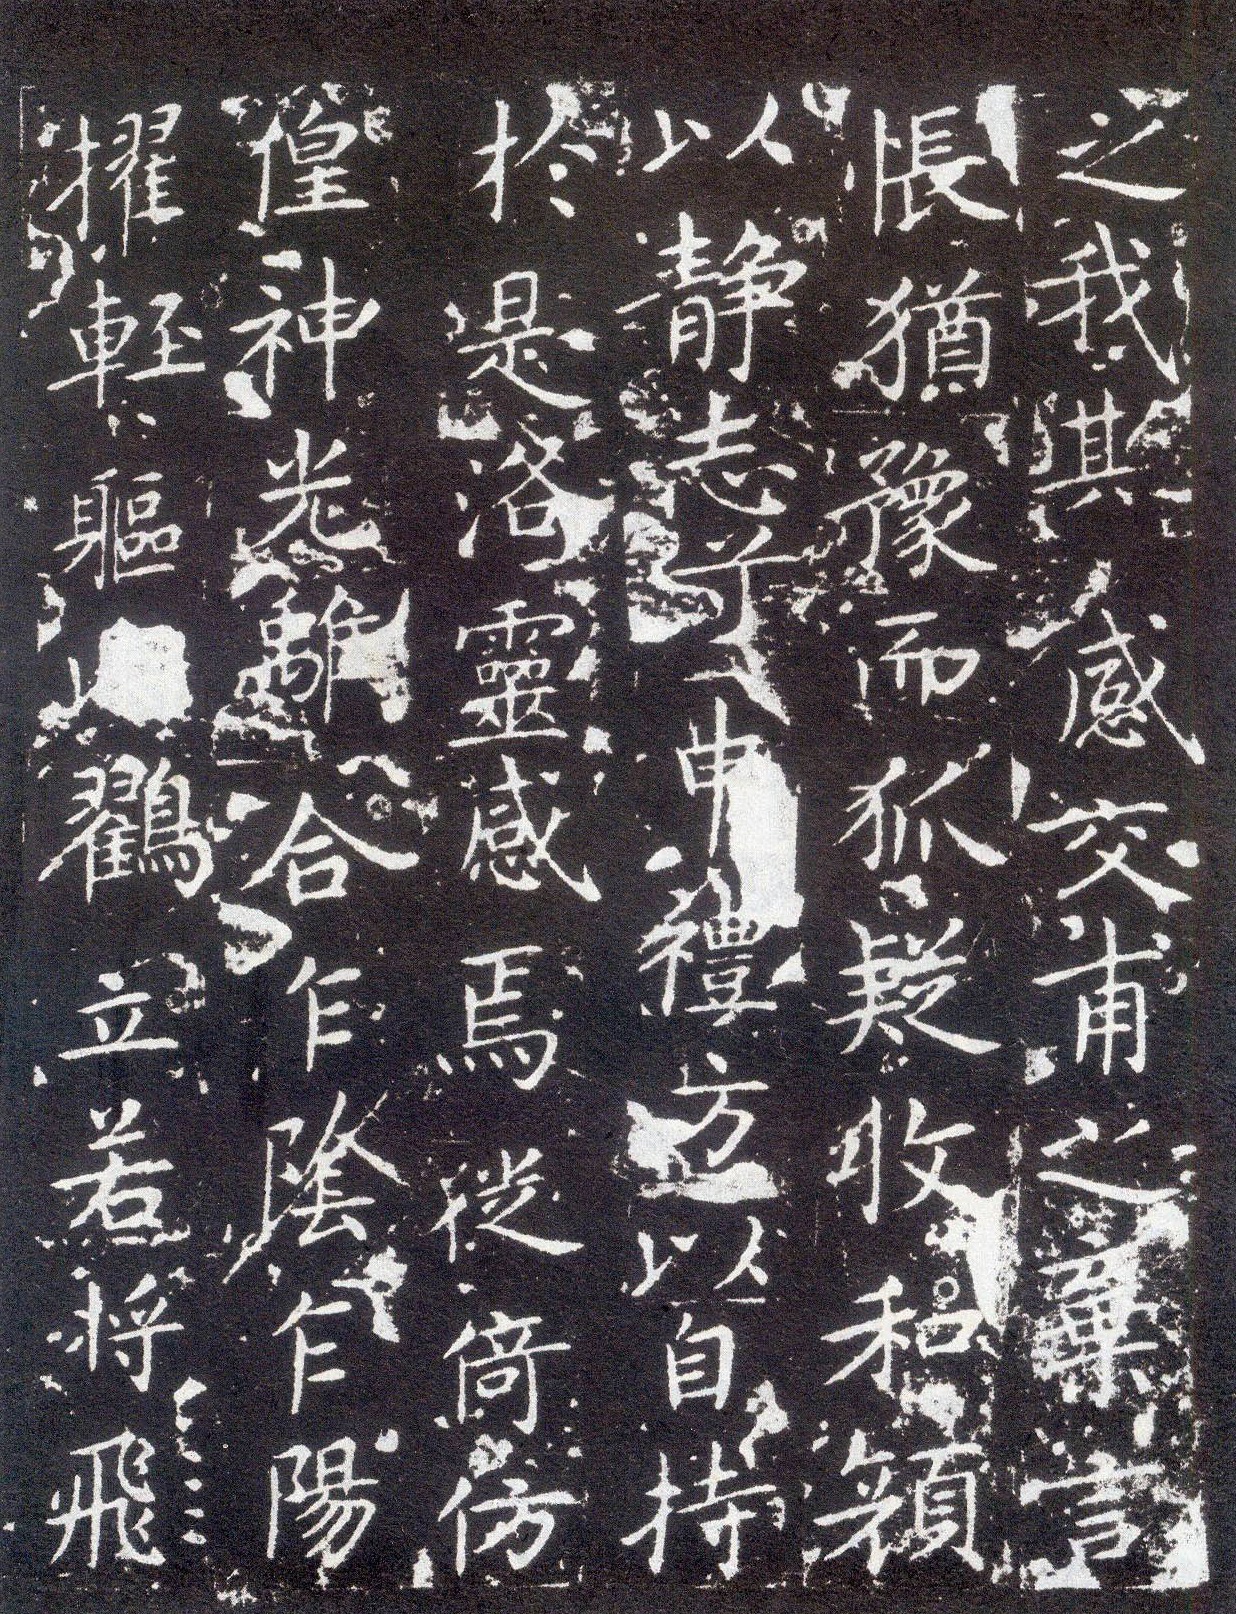 之我其感交甫之棄言
悵猶豫而狐疑收和顏
以静志兮申禮方以自持
於是洛靈感焉徙倚仿
徨神光離合乍陰乍陽
擢輕軀鶴立若將飛